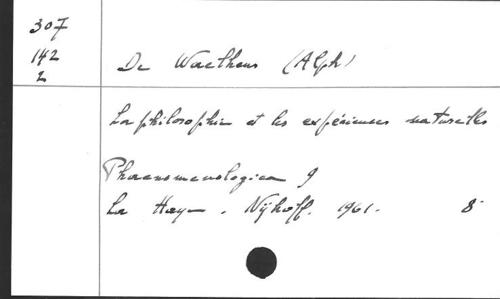 307
142
2
De Waelhens (Alph)
La philosophie et les expériences naturelles
Phaenomenologica 9
La Haye. Nijhoff. 1961. 8°